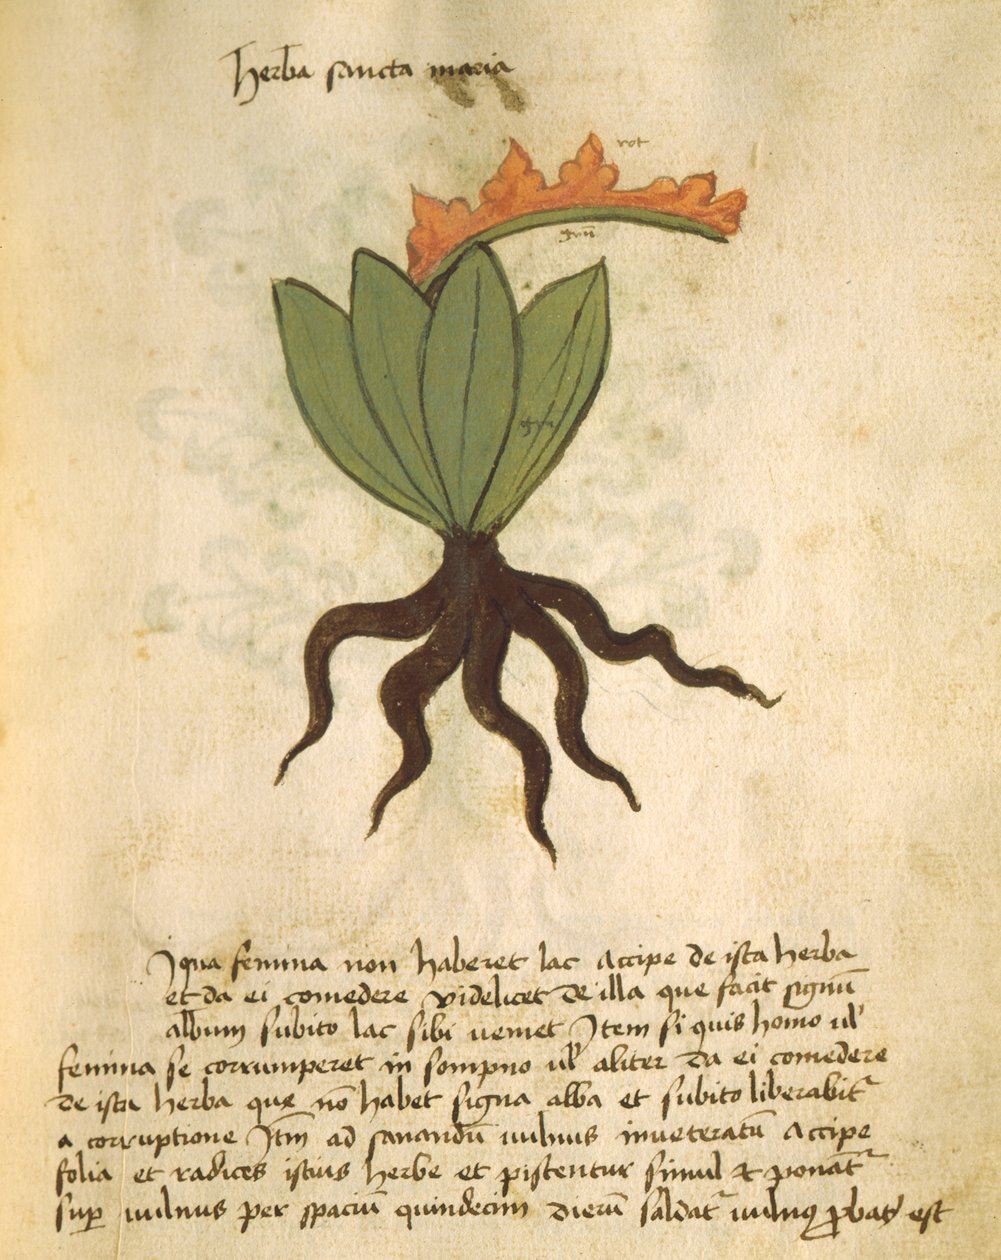 Herba sancta maria
rot
grun
grun
Iqua femina non haberet lac Accipe de ista herba
et da ei comedere videlicet de illa que facit signū
album subito lac sibi veniet Item si quis homo ul'
femina se corrumperet in sompno ul' aliter da ei comedere
de ista herba que nō habet signa alba et subito liberabit᷑
a corruptione Itm̄ ad sanandū uulnus inueteratū Accipe
folia et radices istius herbe et pistentur simul et ponāt᷑
sup̱ uulnus per spaciū quindecim dierū saldat᷑ uulnꝰ ꝓbatū est